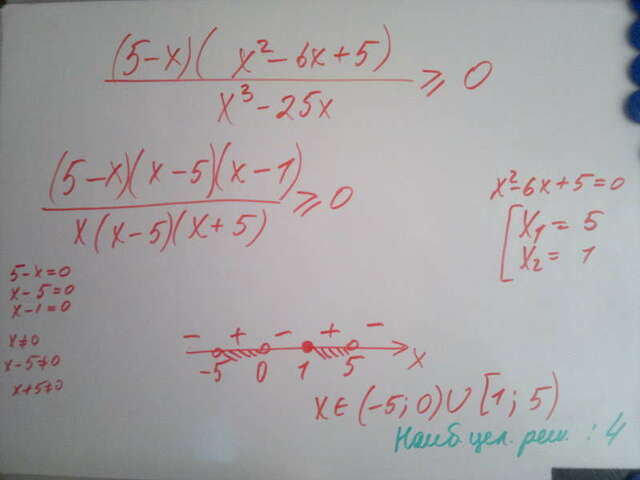 (5-x)(x²-6x+5)
x³-25x
⩾ 0
(5-x)(x-5)(x-1)
x(x-5)(x+5)
⩾ 0
x²-6x+5=0
x₁= 5
x₂= 1
5-x=0
x-5=0
x-1=0
x≠0
x-5≠0
x+5≠0
- + - + -
-5 0 1 5 x
x∈(-5;0)∪[1;5)
Наиб цел. реш. : 4